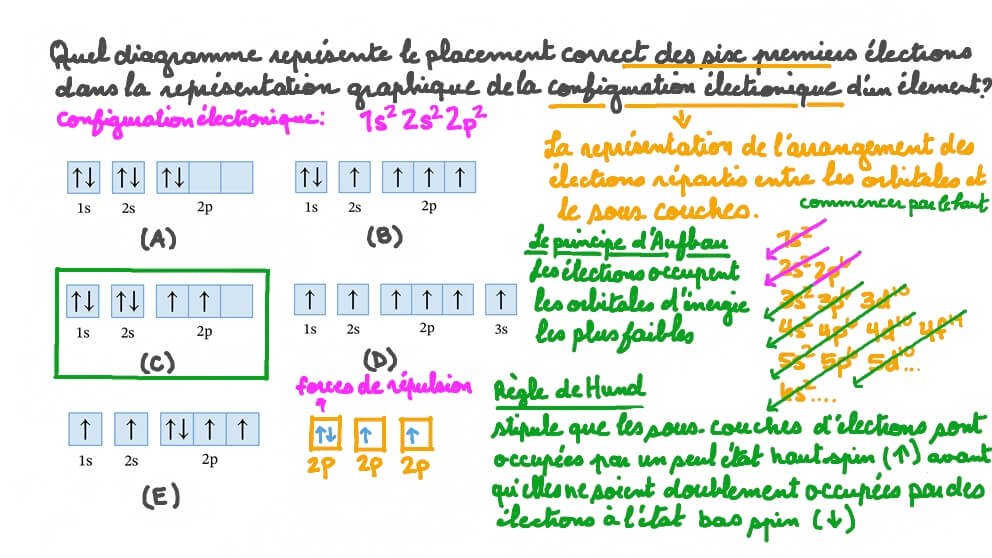 Quel diagramme représente le placement correct des six premiers électrons
dans la représentation graphique de la configuration électronique d'un élement?
Configuration électronique: 1s² 2s² 2p²
La représentation de l'arrangement des
électrons répartis entre les orbitales et
le sous couches.
commencer par le haut
↑↓ ↑↓ ↑↓
1s 2s 2p
(A)
↑↓ ↑ ↑ ↑ ↑
1s 2s 2p
(B)
↑↓ ↑↓ ↑ ↑
1s 2s 2p
(C)
↑ ↑ ↑ ↑ ↑ ↑
1s 2s 2p 3s
(D)
↑ ↑ ↑↓ ↑ ↑
1s 2s 2p
(E)
Le principe d'Aufbau
Les électrons occupent
les orbitales d'énergie
les plus faibles
1s²
2s² 2p⁶
3s² 3p⁶ 3d¹⁰
4s² 4p⁶ 4d¹⁰ 4f¹⁴
5s² 5p⁶ 5d¹⁰...
6s²....
forces de répulsion
↑↓ ↑ ↑
2p 2p 2p
Règle de Hund
stipule que les sous-couches d'électrons sont
occupées par un seul état haut spin (↑) avant
qu'elles ne soient doublement occupées par des
électrons à l'état bas spin (↓)